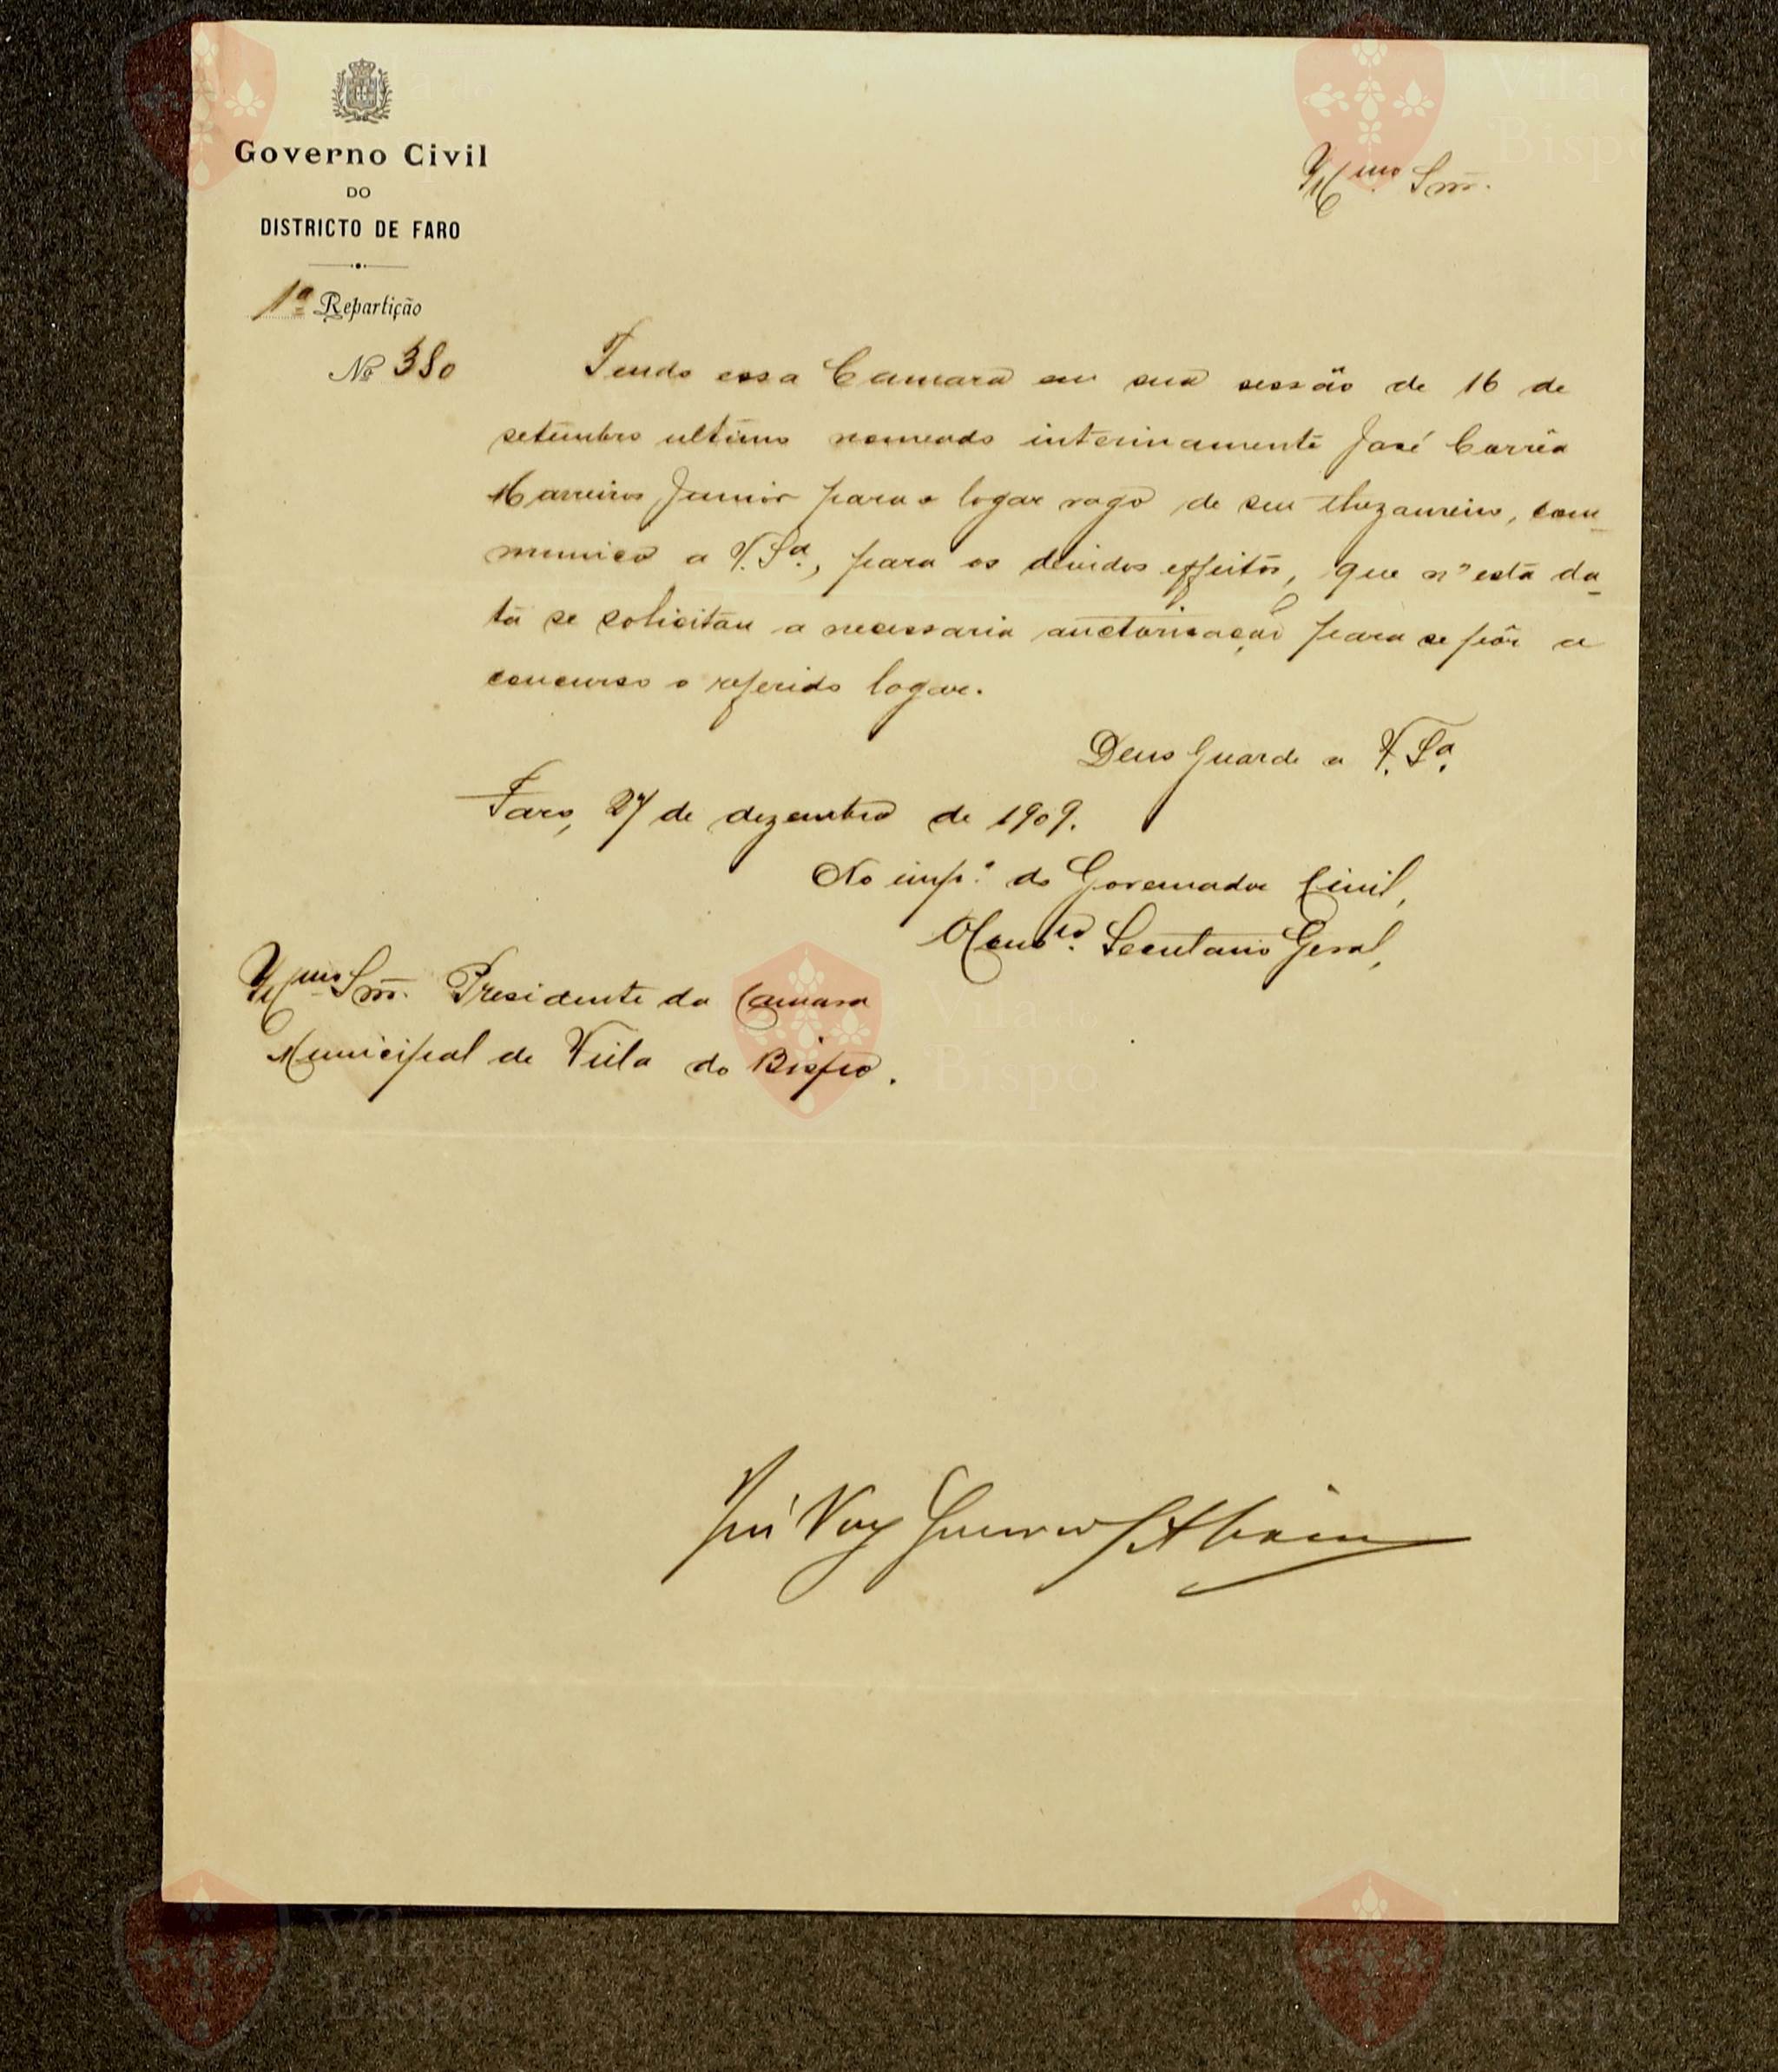 Governo Civil
DO
DISTRICTO DE FARO
1ª Repartição
Nº 380
Illmo Snr.
Tendo essa Camara em sua sessão de 16 de
setembro ultimo nomeado interinamente José Corrêa
Marreiros Junior para o logar vago de seu thezoureiro, com-
munico a V. Sª, para os devidos effeitos, que n'esta da-
ta se solicitou a necessaria auctorisação para se pôr a
concurso o referido logar.
Deus Guarde a V. Sª.
Faro, 27 de dezembro de 1909.
No imp.º do Governador Civil,
Secretario Geral,
Illmo Snr. Presidente da Camara
Municipal de Villa do Bispo.
José Vaz Guerreiro
Vila do
Bispo